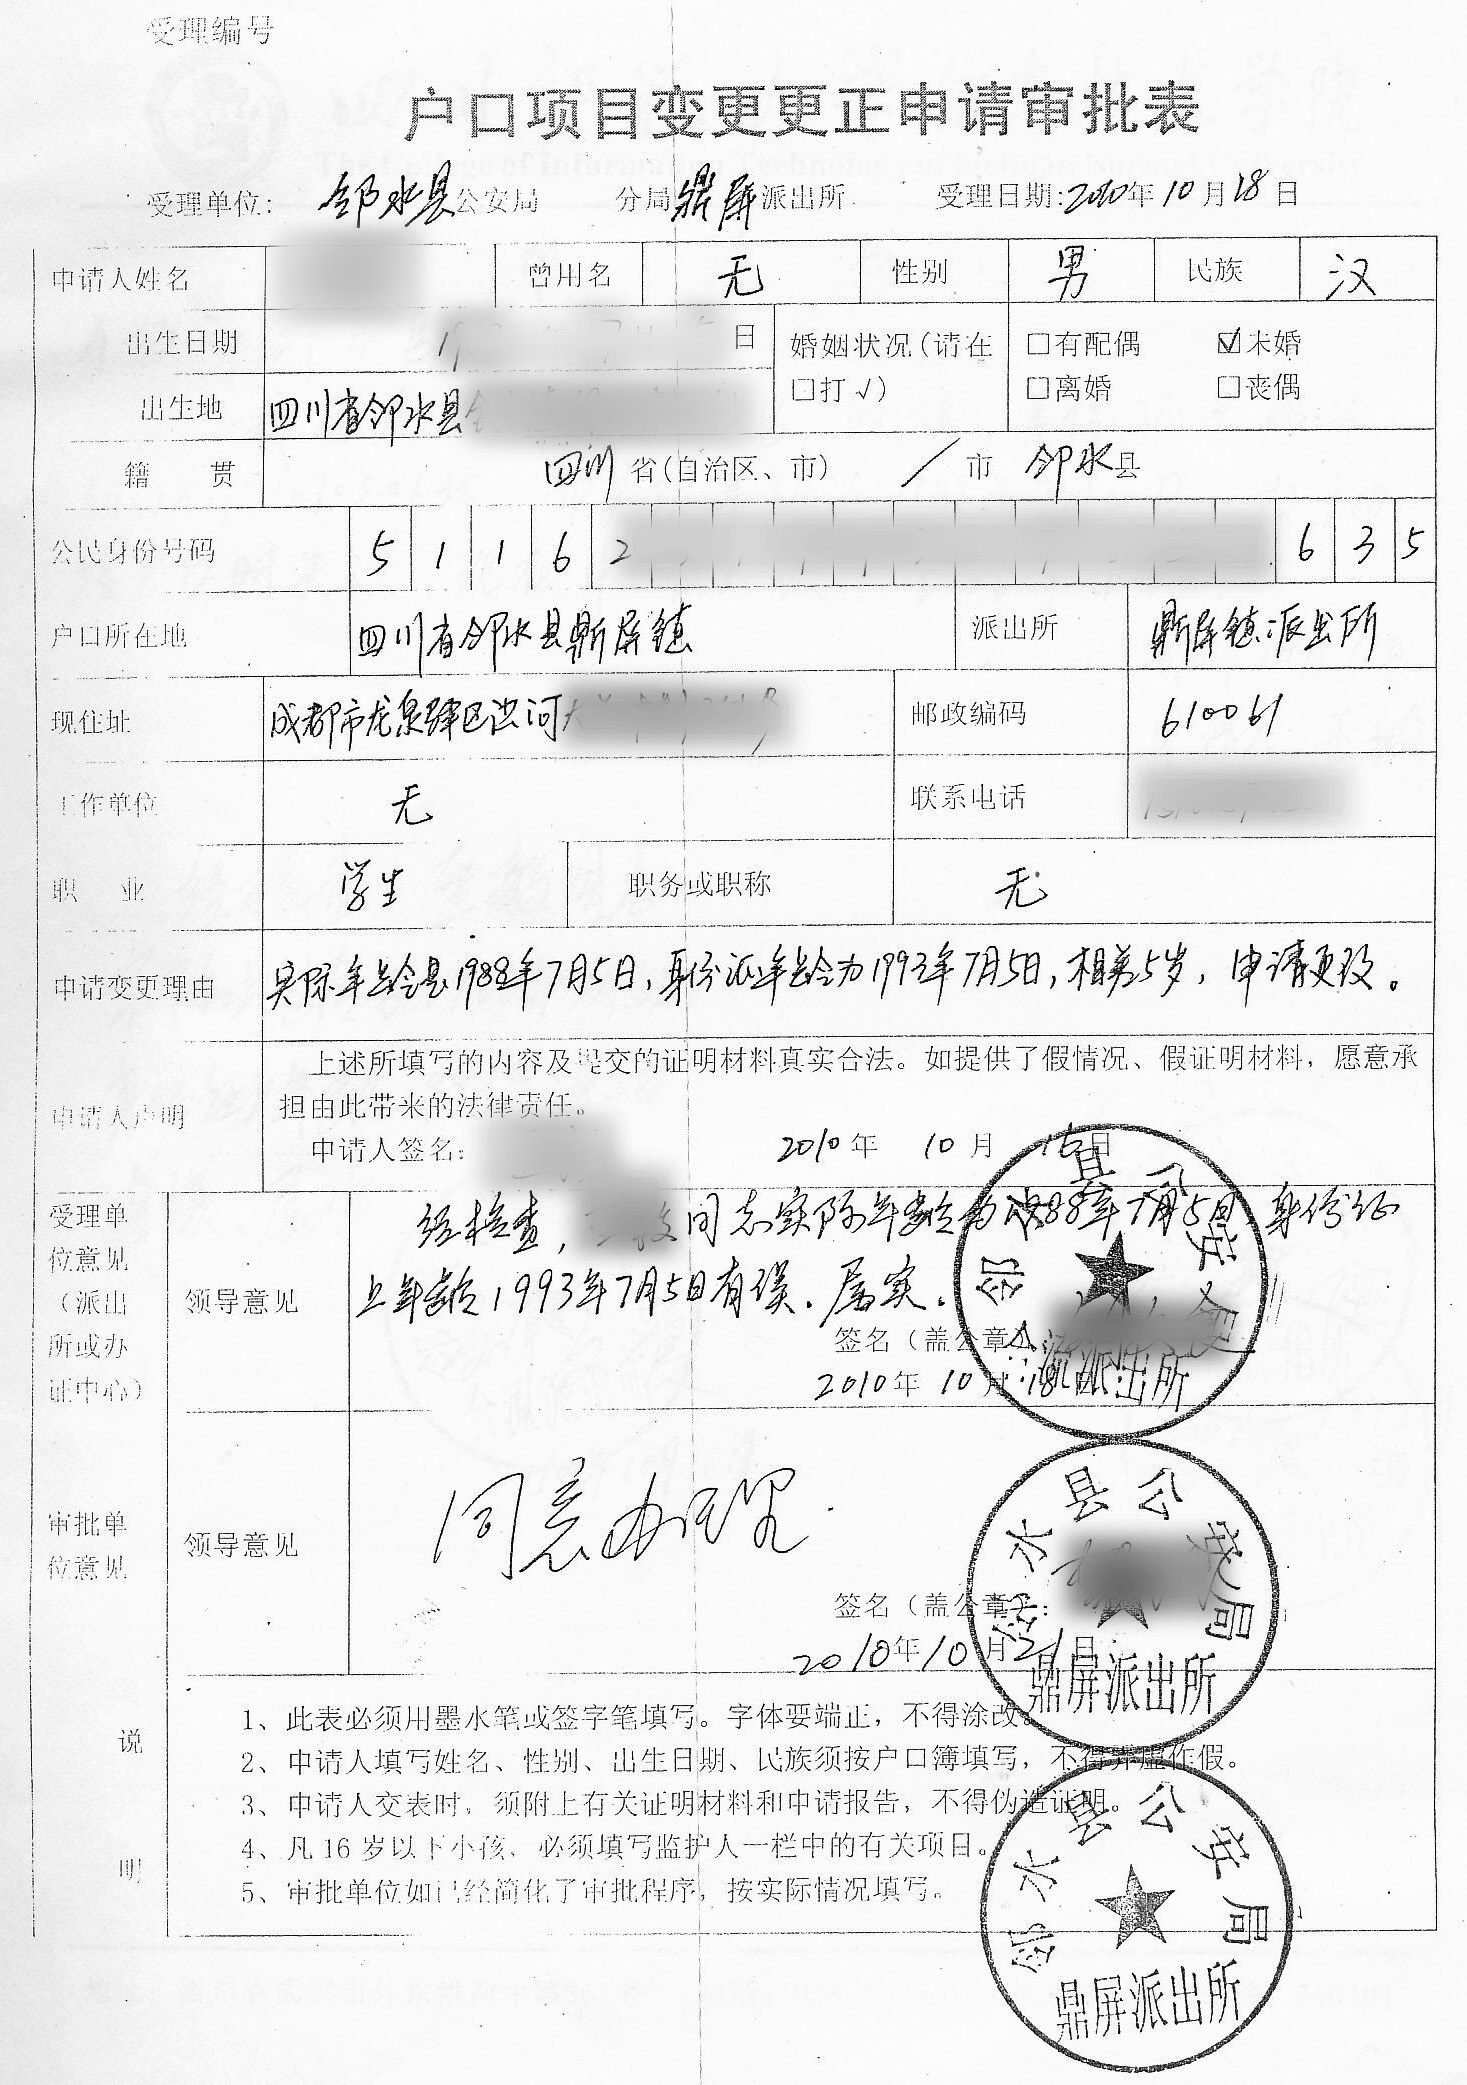 受理编号
户口项目变更更正申请审批表
受理单位: 邻水县公安局 分局鼎屏派出所 受理日期:2010年10月18日
申请人姓名 曾用名 无 性别 男 民族 汉
出生日期 日 婚姻状况(请在□打√) □有配偶 ☑未婚 □离婚 □丧偶
出生地 四川省邻水县
籍贯 四川省(自治区、市) / 市 邻水县
公民身份号码 5 1 1 6 2 6 3 5
户口所在地 四川省邻水县鼎屏镇 派出所 鼎屏镇派出所
现住址 成都市龙泉驿区洪河 邮政编码 610061
工作单位 无 联系电话
职业 学生 职务或职称 无
申请变更理由 实际年龄是1988年7月5日,身份证年龄为1993年7月5日,相差5岁,申请更改。
申请人声明 上述所填写的内容及提交的证明材料真实合法。如提供了假情况、假证明材料,愿意承
担由此带来的法律责任。
申请人签名: 2010年 10月 日
受理单位意见(派出所或办证中心) 领导意见
经检查, 同志实际年龄为1988年7月5日 身份证
上年龄1993年7月5日有误.属实.
签名(盖公章)
2010年10月18
派出所
审批单位意见 领导意见
同意办理.
签名(盖公章):
2010年10月21日
水县公安局
鼎屏派出所
说明
1、此表必须用墨水笔或签字笔填写。字体要端正,不得涂改。
2、申请人填写姓名、性别、出生日期、民族须按户口簿填写,不得弄虚作假。
3、申请人交表时,须附上有关证明材料和申请报告,不得伪造证明。
4、凡16岁以下小孩,必须填写监护人一栏中的有关项目。
5、审批单位如已经简化了审批程序,按实际情况填写。
邻水县公安局
鼎屏派出所